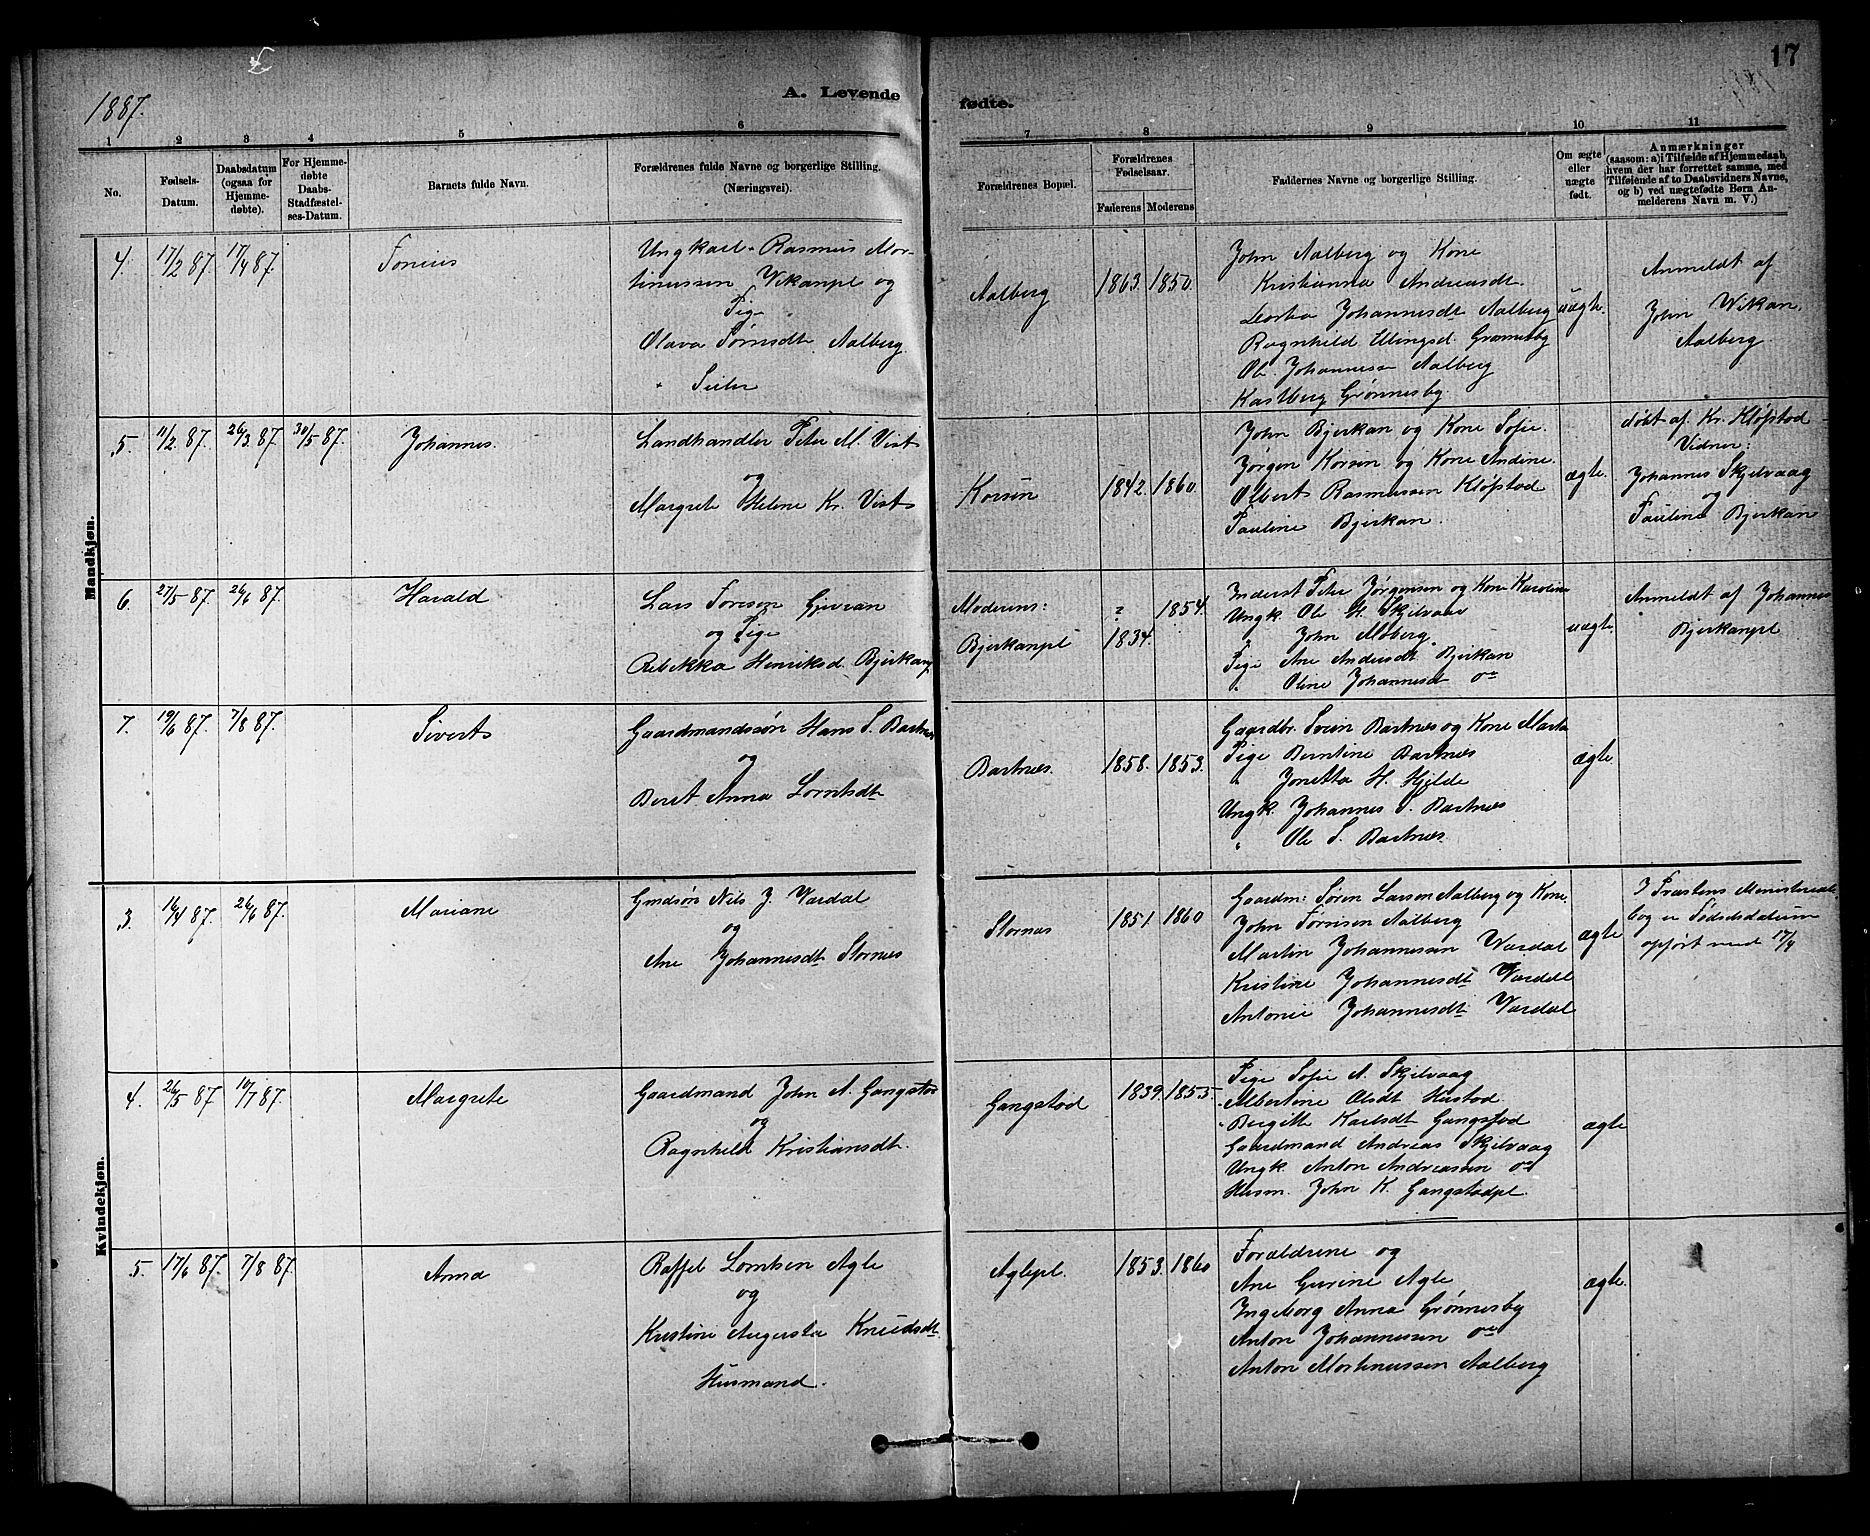 17
1887.
A. Levende fødte.
1 2 3 4 5 6 7 8 9 10 11
No.
Fødsels-
Datum.
Daabsdatum
(ogsaa for
Hjemme-
døbte).
For Hjemme-
døbte
Daabs-
Stadfæstel-
ses-Datum.
Barnets fulde Navn.
Forældrenes fulde Navne og borgerlige Stilling.
(Næringsvei).
Forældrenes Bopæl.
Forældrenes
Fødselsaar.
Faderens Moderens
Faddernes Navne og borgerlige Stilling.
Om ægte
eller
uægte
født.
Anmærkninger
(saasom: a) i Tilfælde af Hjemmedaab,
hvem der har forrettet samme, med
Tilføiende af to Daabsvidners Navne,
og b) ved uægtefødte Børn An-
melderens Navn m. V.)
Mandkjøn.
4. 17/2 87. 17/4 87.
Ungkarl Rasmus Mor-
tinussen Vikanpl og
Pige
Olava Tørrisdt. Aalberg
Aalberg
1863. 1850.
John Aalberg og Kone
Kristianna Andreasdt
Johannesdt Aalberg
Ragnhild Ellingsd. Grønnesby
Ole Johannessen Aalberg
Kastberg Grønnesby
uægte.
Anmeldt af
John Wikan,
Aalberg.
5. 11/2 87. 26/3 87. 30/5 87.
Johannes.
Landhandler Peter M. Vist
og
Margrete Helene Kr. Vist
Korsen
1842. 1860.
John Bjerkan og Kone Sofie.
Jørgen Korsen og Kone Andine.
Albert Rasmussen Kløpstad
Pauline Bjerkan.
ægte.
døbt af Kr. Kløpstad
Vidner:
Johannes Skjelvaag
og
Pauline Bjerkan
6. 27/5 87. 26/6 87.
Harald
Lars Toresen
og Pige
Rebekka Henriksd. Bjerkanp
Moderens:
Bjerkanpl
? 1854.
1834.
Inderst Peter Jørgensen og Kone Karoline
Ungk. Ole H.
John Moberg.
Pige Ane Andersdt Bjerkan
" Oline Johannesdt do
uægte.
Anmeldt af Johannes
Bjerkanpl
7. 19/6 87. 7/8 87.
Sivert
Gaardmandssøn Hans S. Bartnes
og
Beret Anna Lorntsdt
Bartnes.
1858. 1853.
Gaardbr. Svein Bartnes og Kone Marta
Pige Berntine Bartnes
" Jonetta H. Hjelde
Ungk. Johannes S. Bartnes
" Ole S. Bartnes.
ægte
Kvindekjøn.
3. 16/4 87. 26/6 87.
Mariane
Gmdsøn Nils J. Vardal
og
Ane Johannesdt Stornes
Stornes
1851. 1860
Gaardm: Søren Larsen Aalberg og Kone.
John Tørrisen Aalberg
Martin Johannessen Wardal
Kristine Johannesdt Wardal
Antonie Johannesdt Vardal
ægte
I Præstens Ministerial-
bog er Fødselsdatum
opført med 17/4
4. 26/5 87 10/7 87.
Margrete
Gaardmand John A. Gangstad
og
Ragnhild Kristiansdt.
Gangstad
1839. 1855.
Pige Sofie A. Skjelvaag
" Albertine Olsdt Hustad
" Bergitte Karlsdt Gangstad
Gaardmand Andreas Skjelvaag
Ungk. Anton Andreassen do
Husm. John K. Gangstadpl.
ægte
5. 17/6 87. 7/8 87.
Anna
Raffel Lorntsen Agle
og
Kristine Augusta Knudsdt
Husmand.
Aglepl.
1853. 1860
Forældrene og
Ane Gurine Agle
Ingeborg Anna Grønnesby
Anton Johannessen do
Anton Mortinussen Aalberg
ægte.